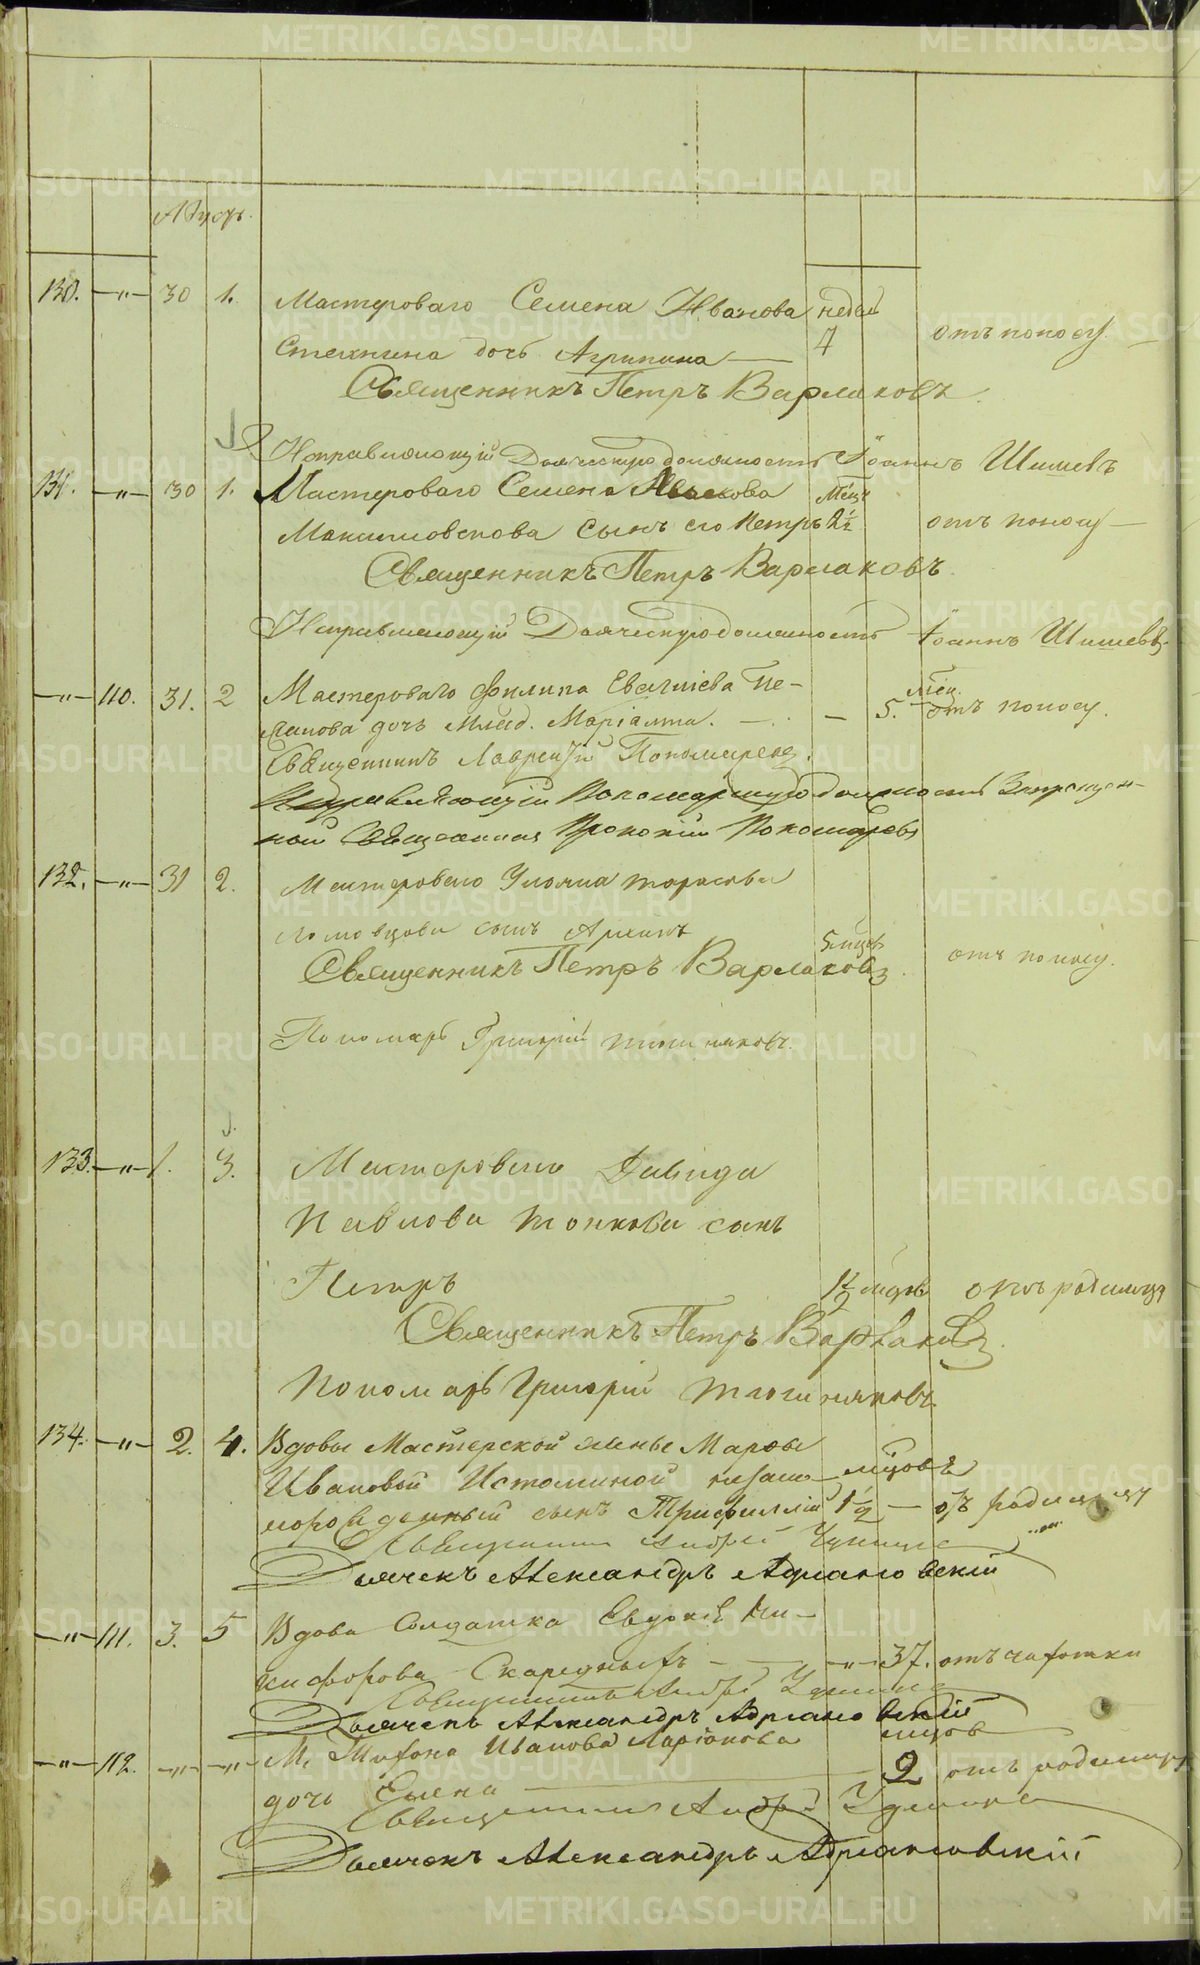 METRIKI.GASO-URAL.RU
130. —"— 30 1. Мастероваго Семена Иванова недѣл
дочь Агрипина — 7 отъ поносу.
Священникъ Петръ Варлаковъ.
Исправляющій Дьяческую должность Іоаннъ Шишевъ
131. —"— 30 1. Мастероваго Семена мѣц
сынъ его Петръ 2½ отъ поносу —
Священникъ Петръ Варлаковъ.
Исправляющій Дьяческую должность Іоаннъ Шишевъ.
—"— 110. 31. 2 Мастероваго Филипа Пе- мѣц.
дочь млад. — 5. отъ поносу.
Священникъ Лаврентій
Исправляющій Пономарскую должность Запрещен-
ной Священникъ Прокопій Пономаревъ
132. —"— 31 2. Мастероваго Тарасова
сынъ Архипъ
5 мцов отъ поносу.
Священникъ Петръ Варлаковъ.
Пономарь Григорій
133. —"— 1. 3. Мастероваго Давида
Павлова сынъ
Петръ 1½ мцовъ отъ родимца
Священникъ Петръ Варлаковъ.
Пономарь Григорій
134. —"— 2. 4. Вдовы Мастерской жены Марфы
Ивановой Истоминой незако- мцовъ
норожденный сынъ Трифиллій 1½ — отъ родимцу
Священникъ Андрей
Дьячекъ Александръ Адріановскій
—"— 111. 3. 5 Вдова Солдатка Евдокія Ни-
кифорова — —"— 37. отъ чахотки
Священникъ Андрей
Дьячекъ Александръ Адріановскій
—"— 112. —"— —"— М. Иванова Ларіонова мцов
дочь Елена — 2 отъ родимцу
Священникъ Андрей
Дьячекъ Александръ Адріановскій